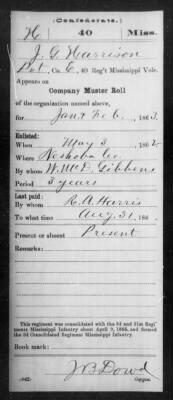 (Confederate.)
H 40 Miss.
J. G. Harrison
Pvt, Co. C, 40 Reg't Mississippi Vols.
Appears on
Company Muster Roll
of the organization named above,
for Jan & Feb, 1863.
Enlisted:
When May 3, 1862
Where Neshoba Co.
By whom W. McD. Gibbens
Period 3 years
Last paid:
By whom R. A. Harris
To what time Aug. 31, 186
Present or absent Present
Remarks:
This regiment was consolidated with the 3d and 31st Regiments Mississippi Infantry about April 9, 1865, and formed the 3d Consolidated Regiment Mississippi Infantry.
Book mark:
(642) J B Dowd
Copyist.